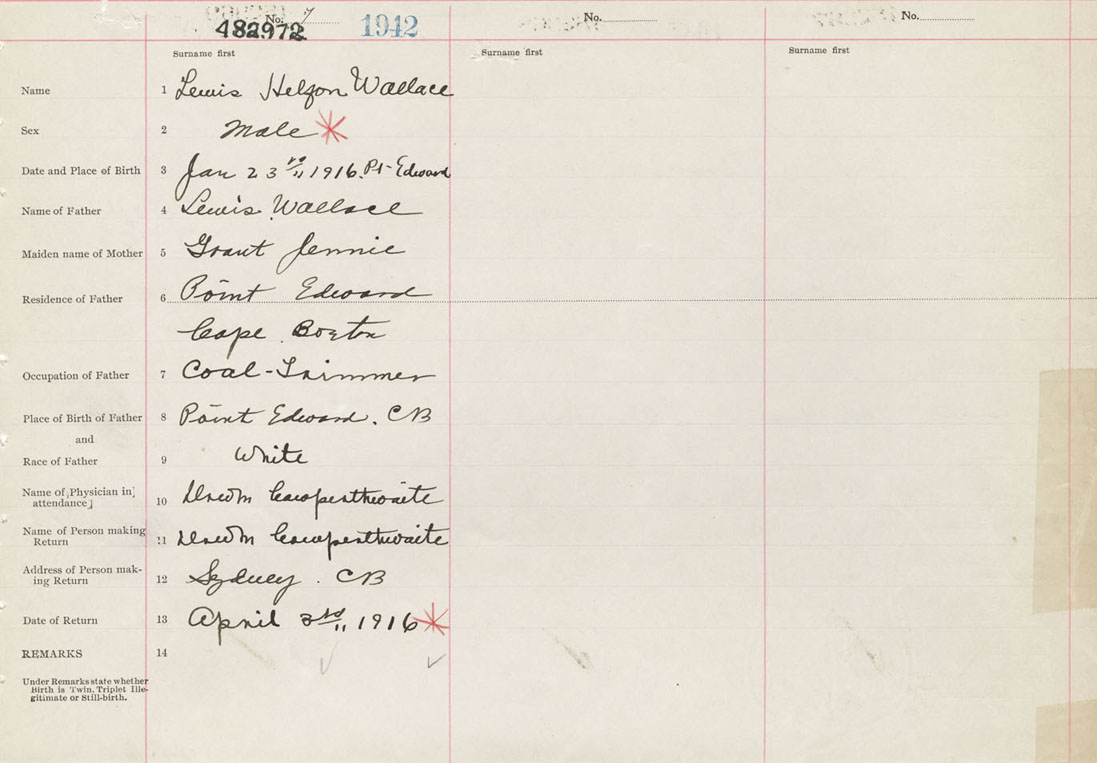 No. 7 No. No.
482972 1942
Surname first Surname first Surname first
Name 1 Lewis Wallace
Sex 2 Male
Date and Place of Birth 3 Jan 23rd 1916. Pt Edward
Name of Father 4 Lewis Wallace
Maiden name of Mother 5 Grant Jennie
Residence of Father 6 Point Edward
Cape
Occupation of Father 7 Coal-Trimmer
Place of Birth of Father 8 Point Edward. CB
and
Race of Father 9 White
Name of Physician in
attendance 10 Cowperthwaite
Name of Person making
Return 11 Cowperthwaite
Address of Person mak-
ing Return 12 Sydney. CB
Date of Return 13 April 1916
REMARKS 14
Under Remarks state whether
Birth is Twin, Triplet Ille-
gitimate or Still-birth.